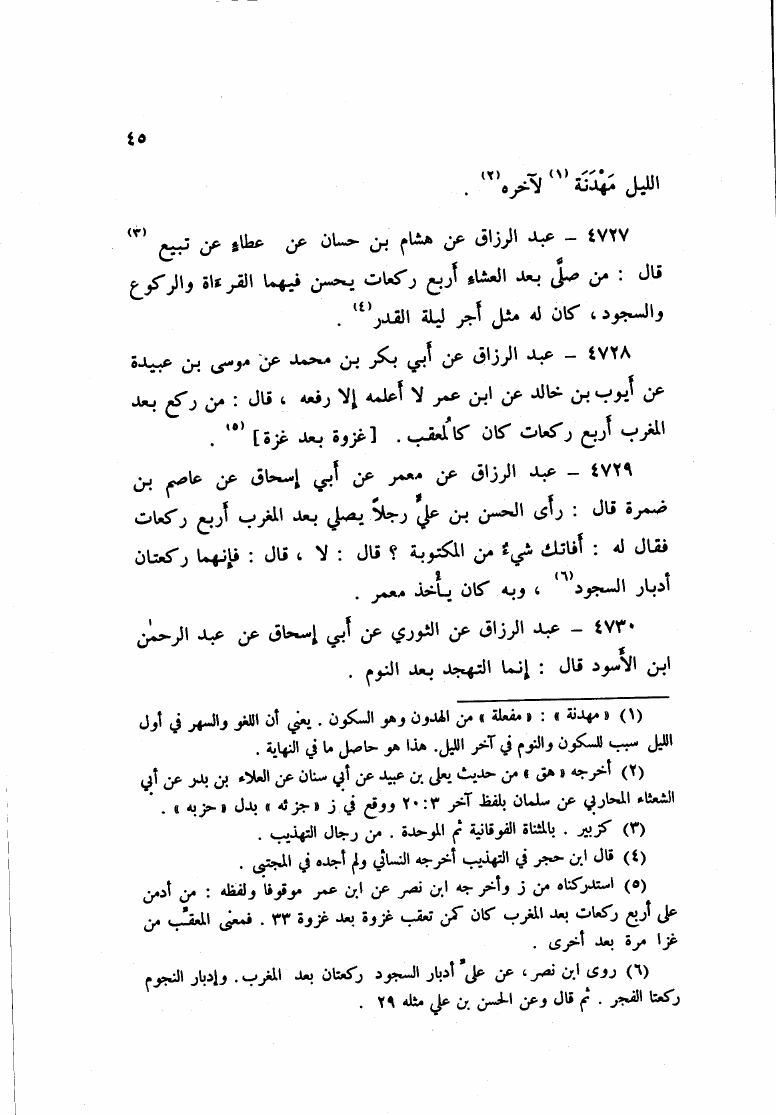 ٤٥
الليل مَهْدَنَة (١) لآخره (٢) .
٤٧٢٧ – عبد الرزاق عن هشام بن حسان عن عطاءٍ عن تبيع (٣)
قال : من صلَّى بعد العشاءِ أربع ركعات يحسن فيهما القراءة والركوع
والسجود ، كان له مثل أجر ليلة القدر (٤) .
٤٧٢٨ – عبد الرزاق عن أبي بكر بن محمد عن موسى بن عبيدة
عن أيوب بن خالد عن ابن عمر لا أعلمه إلا رفعه ، قال : من ركع بعد
المغرب أربع ركعات كان كالمُعقب . [غزوة بعد غزة] (٥) .
٤٧٢٩ – عبد الرزاق عن معمر عن أبي إسحاق عن عاصم بن
ضمرة قال : رأى الحسن بن عليٍّ رجلاً يصلي بعد المغرب أربع ركعات
فقال له : أفاتك شيءٌ من المكتوبة ؟ قال : لا ، قال : فإنهما ركعتان
أدبار السجود (٦) ، وبه كان يأْخذ معمر .
٤٧٣٠ – عبد الرزاق عن الثوري عن أبي إسحاق عن عبد الرحمٰن
ابن الأَسود قال : إنما التهجد بعد النوم .
(١) « مهدنة » : « مفعلة » من الهدون وهو السكون . يعني أن اللغو والسهر في أول
الليل سبب للسكون والنوم في آخر الليل. هذا هو حاصل ما في النهاية .
(٢) أخرجه « هق » من حديث يعلى بن عبيد عن أبي سنان عن العلاء بن بدر عن أبي
الشعثاء المحاربي عن سلمان بلفظ آخر ٣ : ٢٠ ووقع في ز « جزئه » بدل « حزبه » .
(٣) كزبير . بالمثناة الفوقانية ثم الموحدة . من رجال التهذيب .
(٤) قال ابن حجر في التهذيب أخرجه النسائي ولم أجده في المجتبى .
(٥) استدركناه من ز وأخرجه ابن نصر عن ابن عمر موقوفا ولفظه : من أدمن
على أربع ركعات بعد المغرب كان كمن تعقب غزوة بعد غزوة ٣٣ . فمعنى المعقّب من
غزا مرة بعد أخرى .
(٦) روى ابن نصر ، عن عليّ أدبار السجود ركعتان بعد المغرب . وإدبار النجوم
ركعتا الفجر . ثم قال وعن الحسن بن علي مثله ٢٩ .